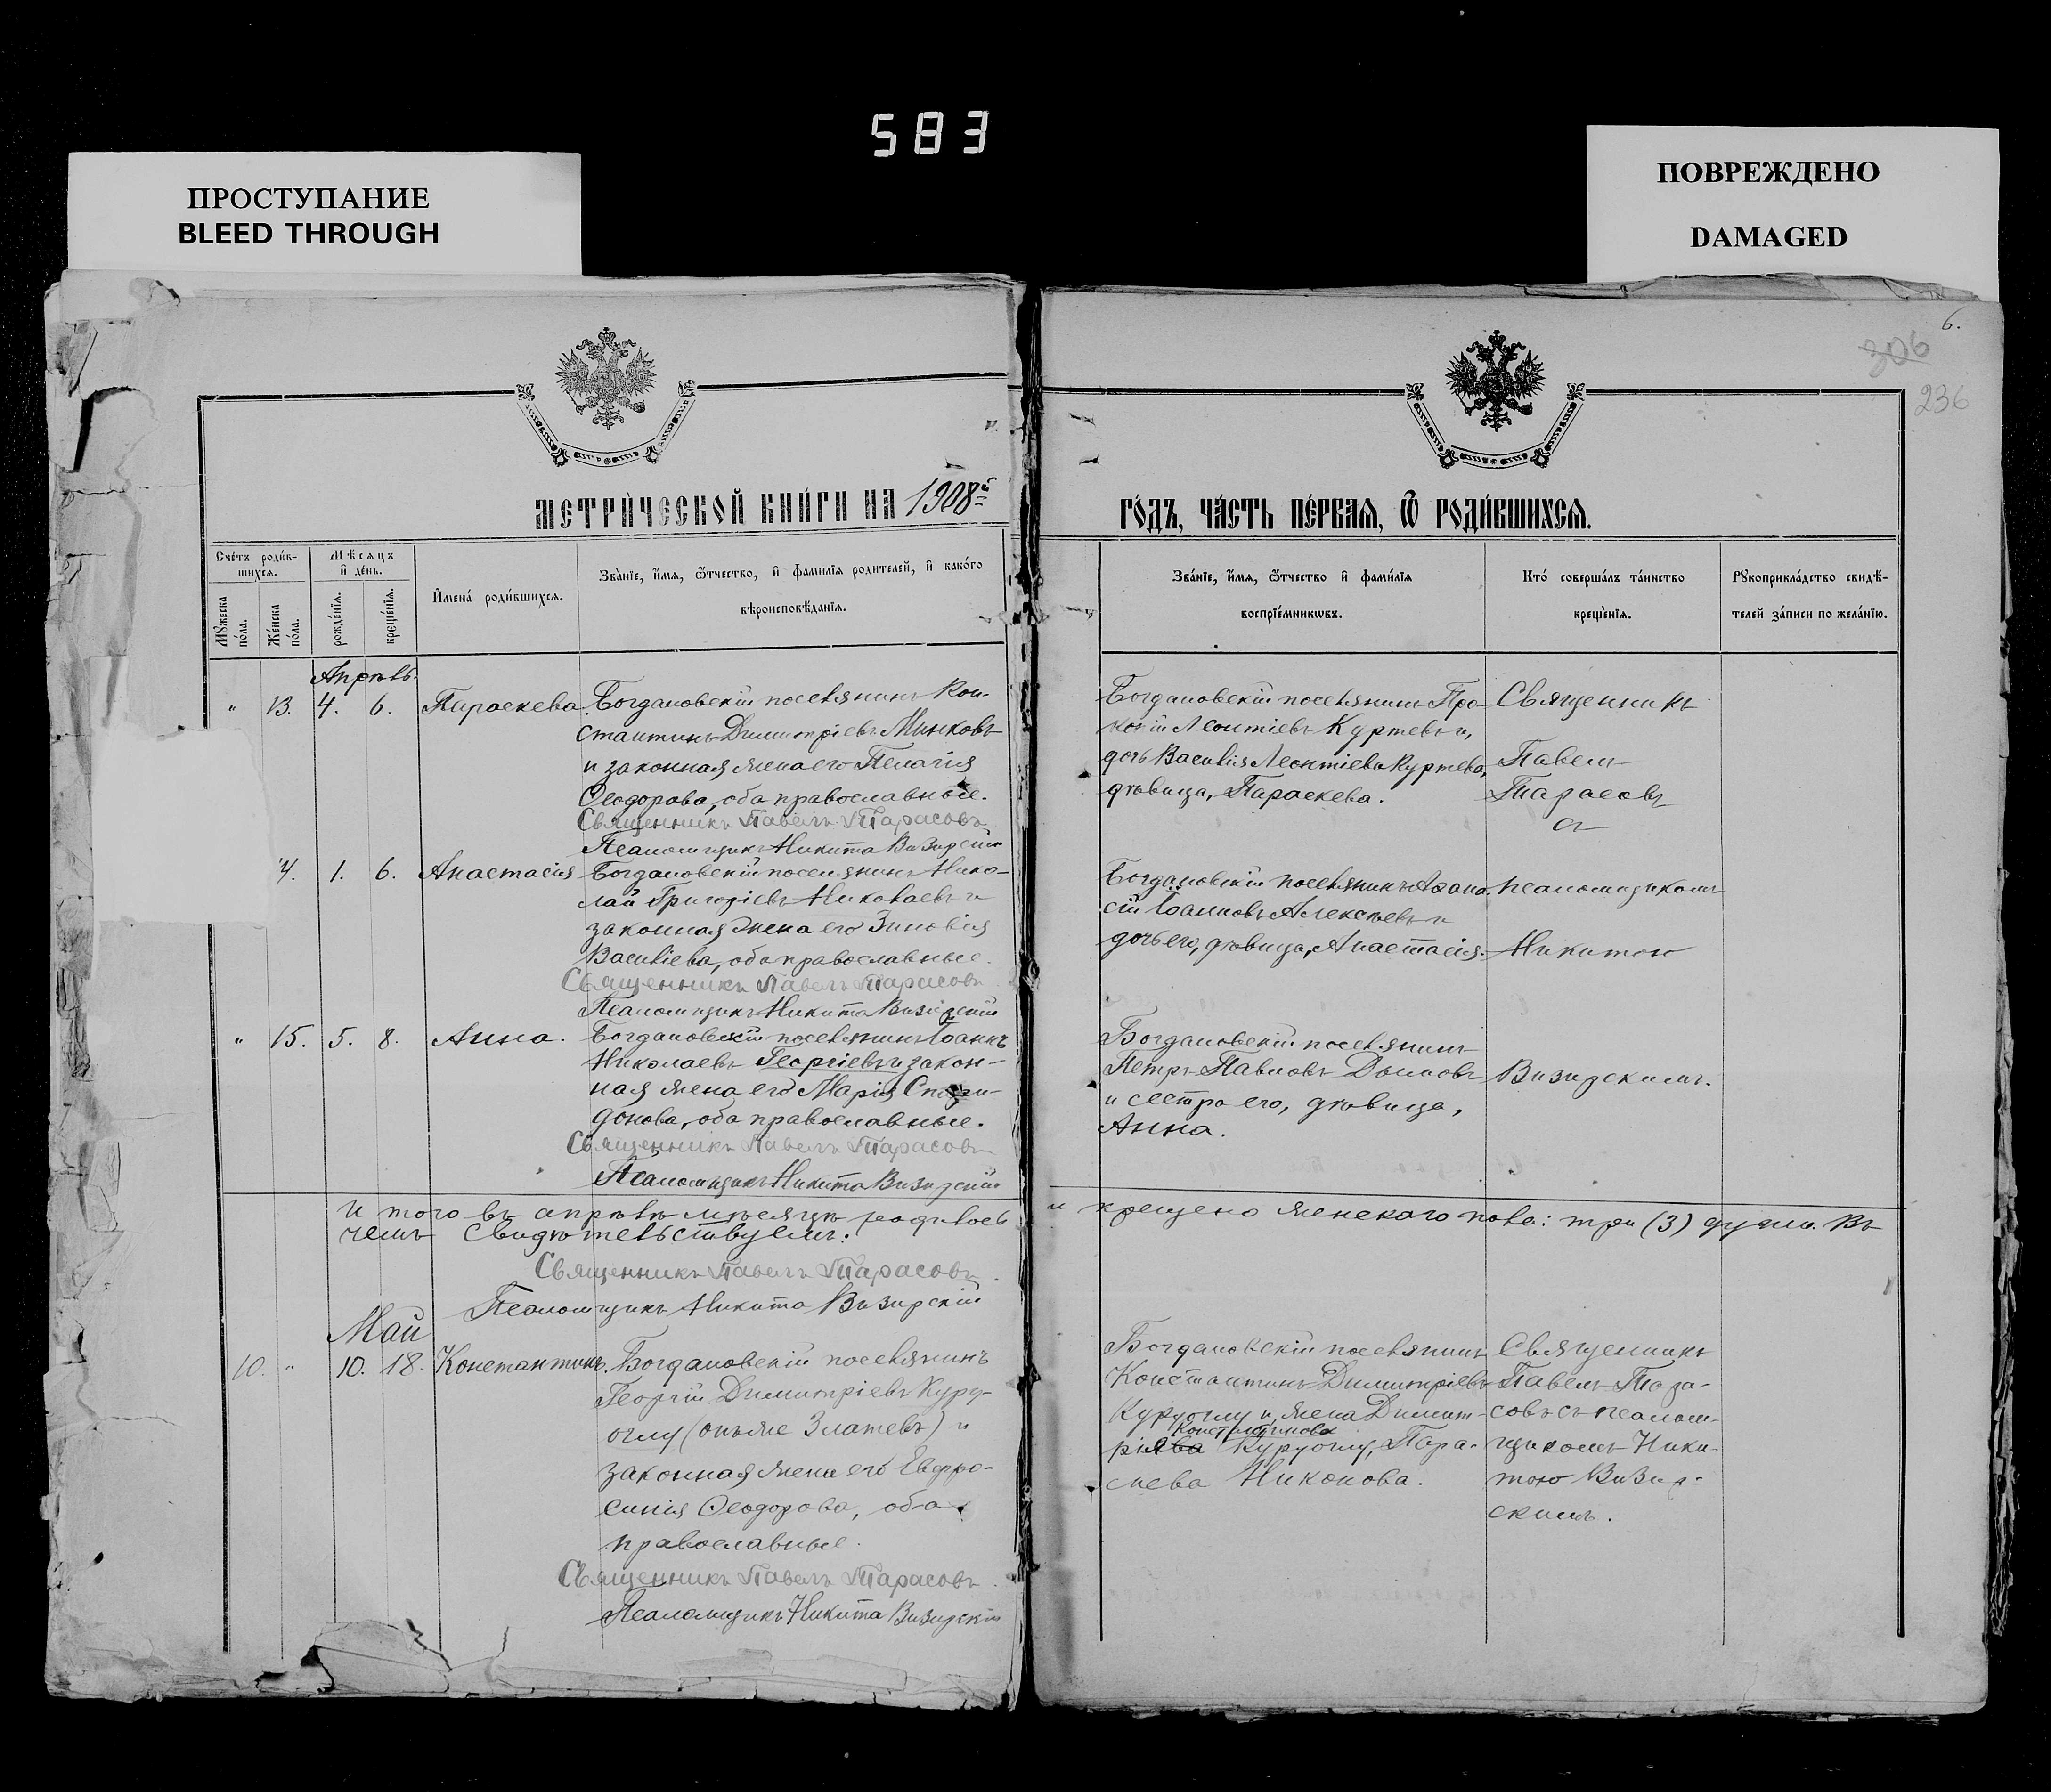 583
ПРОСТУПАНИЕ
BLEED THROUGH
ПОВРЕЖДЕНО
DAMAGED
6.
306
236
МЕТРИ́ЧЕСКОЙ КНИ́ГИ НА 1908й
ГО́ДЪ, ЧА́СТЬ ПЕ́РВАЯ, Ѡ РОДИ́ВШИХСЯ.
Сче́тъ роди́в-
шихся.
Мѣ́сяцъ
и де́нь.
Му́жеска по́ла.
Же́нска по́ла.
рожде́нїя.
креще́нїя.
И҆мена́ роди́вшихся.
Зва́нїе, и҆́мя, ѻ҆́тчество, и҆ фами́лїя родителей, и҆ како́го
вѣроисповѣ́данїя.
Зва́нїе, и҆́мя, ѻ҆́тчество и҆ фами́лїя
воспрїе́мниковъ.
Кто́ соверша́лъ та́инство
креще́нїя.
Рꙋкоприкла́дство свидѣ́-
телей за́писи по жела́нїю.
Апрѣль.
" 13. 4. 6. Параскева. Богдановскій поселянинъ Кон-
стантинъ Димитріевъ Минковъ
и законная жена его Пелагія
Ѳеодорова, оба православные.
Священникъ Павелъ Тарасовъ
Псаломщикъ Никита Визирскій
Богдановскій поселянинъ Про-
копій Леонтіевъ Куртевъ и,
дочь Василія Леонтіева Куртева,
дѣвица, Параскева.
Священникъ
Павелъ
Тарасовъ
съ
14. 1. 6. Анастасія Богдановскій поселянинъ Нико-
лай Григоріевъ Николаевъ и
законная жена его Зиновія
Василіева, оба православные.
Священникъ Павелъ Тарасовъ
Псаломщикъ Никита Визирскій
Богдановскій поселянинъ Аѳана-
сій Іоанновъ Алексѣевъ и
дочь его, дѣвица, Анастасія.
псаломщикомъ
Никитою
" 15. 5. 8. Анна. Богдановскій поселянинъ Іоаннъ
Николаевъ Георгіевъ и закон-
ная жена его Марія Спири-
донова, оба православные.
Священникъ Павелъ Тарасовъ
Псаломщикъ Никита Визирскій
Богдановскій поселянинъ
Петръ Павловъ Дымовъ
и сестра его, дѣвица,
Анна.
Визирскимъ.
И того въ апрѣлѣ мѣсяцѣ родилось и крещено женскаго пола: три (3) души. Въ
чемъ свидѣтельствуемъ:
Священникъ Павелъ Тарасовъ.
Псаломщикъ Никита Визирскій
Май
10. " 10. 18. Константинъ. Богдановскій поселянинъ
Георгій Димитріевъ Куру-
оглу (онъ же Златевъ) и
законная жена его Евфро-
синія Ѳеодорова, оба
православные.
Священникъ Павелъ Тарасовъ.
Псаломщикъ Никита Визирскій
Богдановскій поселянинъ
Константинъ Димитріевъ
Куруоглу и, жена Димит-
Константинова
рія Куруоглу, Пара-
скева Никонова.
Священникъ
Павелъ Тара-
совъ съ псалом-
щикомъ Ники-
тою Визир-
скимъ.